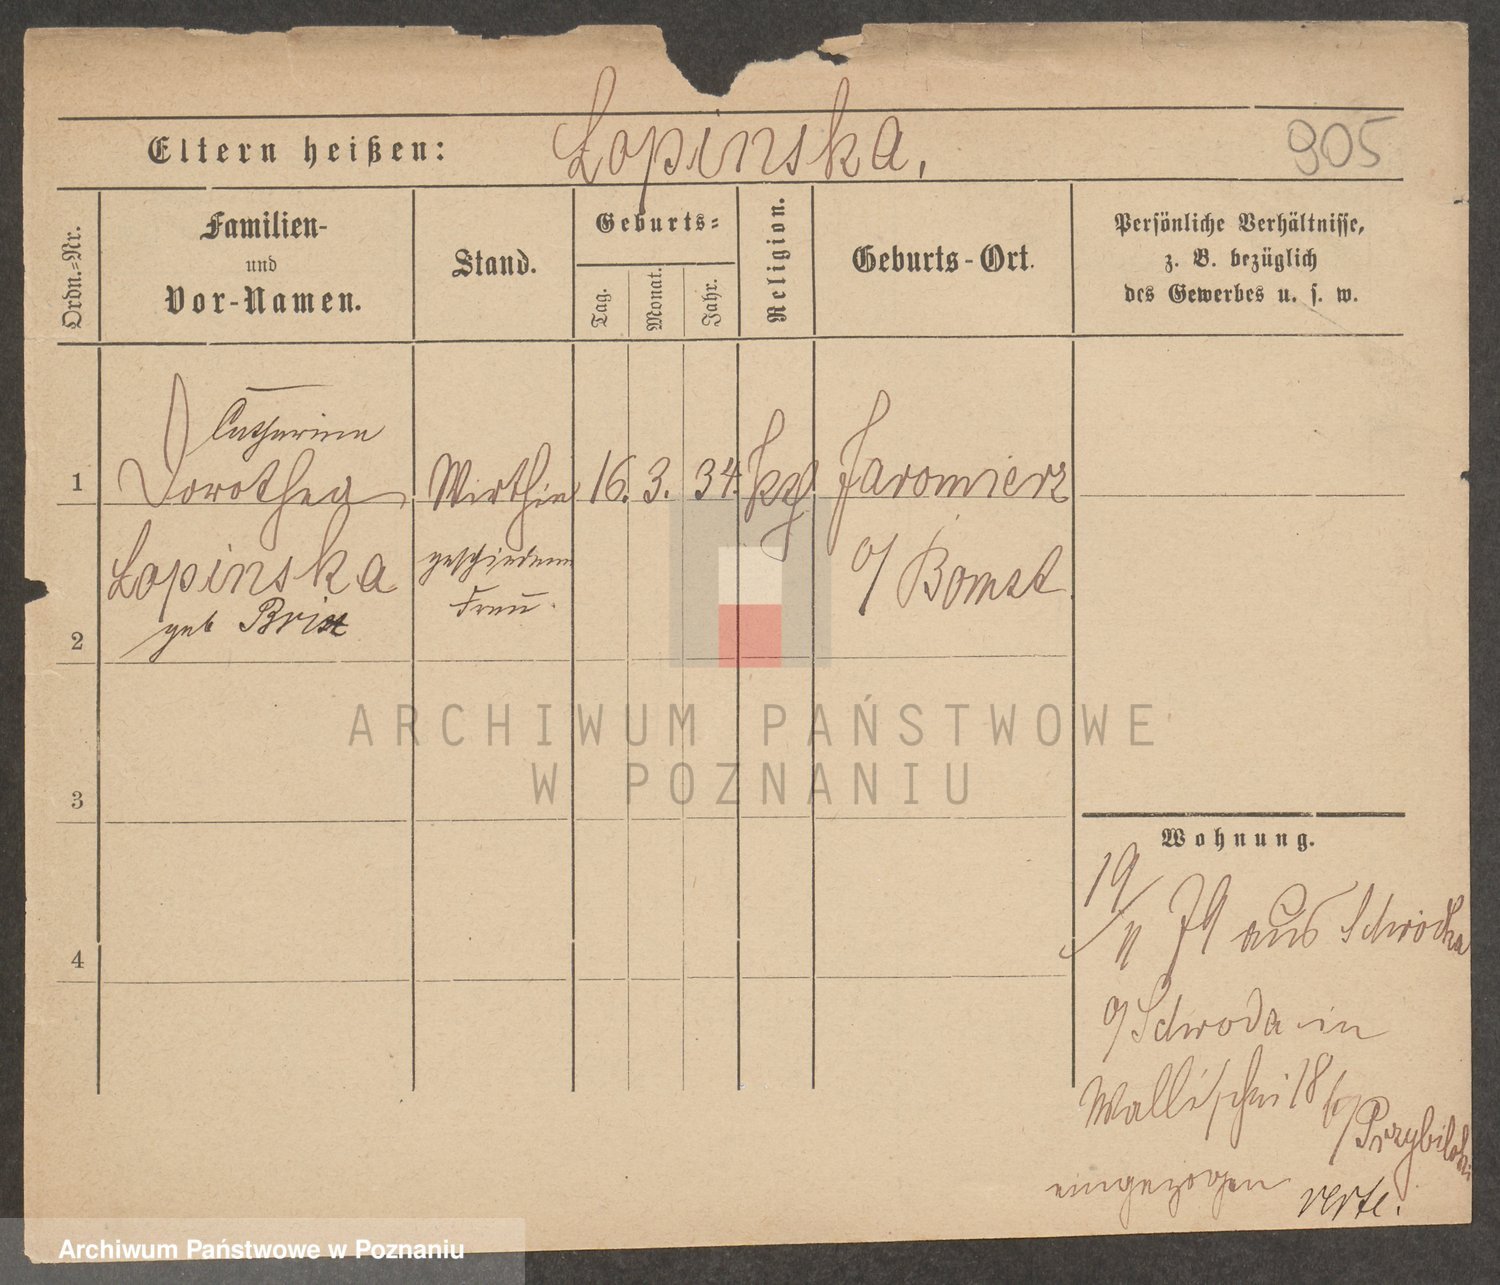 Eltern heißen: Łopinska, 905
Ordn.-Nr.
Familien-
und
Vor-Namen.
Stand.
Geburts-
Tag.
Monat.
Jahr.
Religion.
Geburts-Ort.
Persönliche Verhältnisse,
z. B. bezüglich
des Gewerbes u. s. w.
Catharina
1 Dorothea Wirthin 16. 3. 34. Jaromierz
Lopinska geschiedene o/ Bomst
geb Frau.
2
3
4
Wohnung.
19/11 79 aus
o/ Schroda in
Wallischei 18 b/ Przybilski
eingezogen verte.
ARCHIWUM PAŃSTWOWE
W POZNANIU
Archiwum Państwowe w Poznaniu